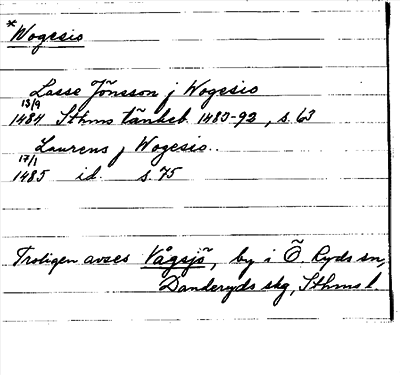 *Wogesio
Lasse Jönsson j Wogesio
13/9
1484 Sthms tänkeb. 1483-92, s. 63
Laurens j Wogesio.
17/1
1485 id. s. 75
Troligen avses Vågsjö, by i Ö. Ryds sn,
Danderyds skg, Sthms l.